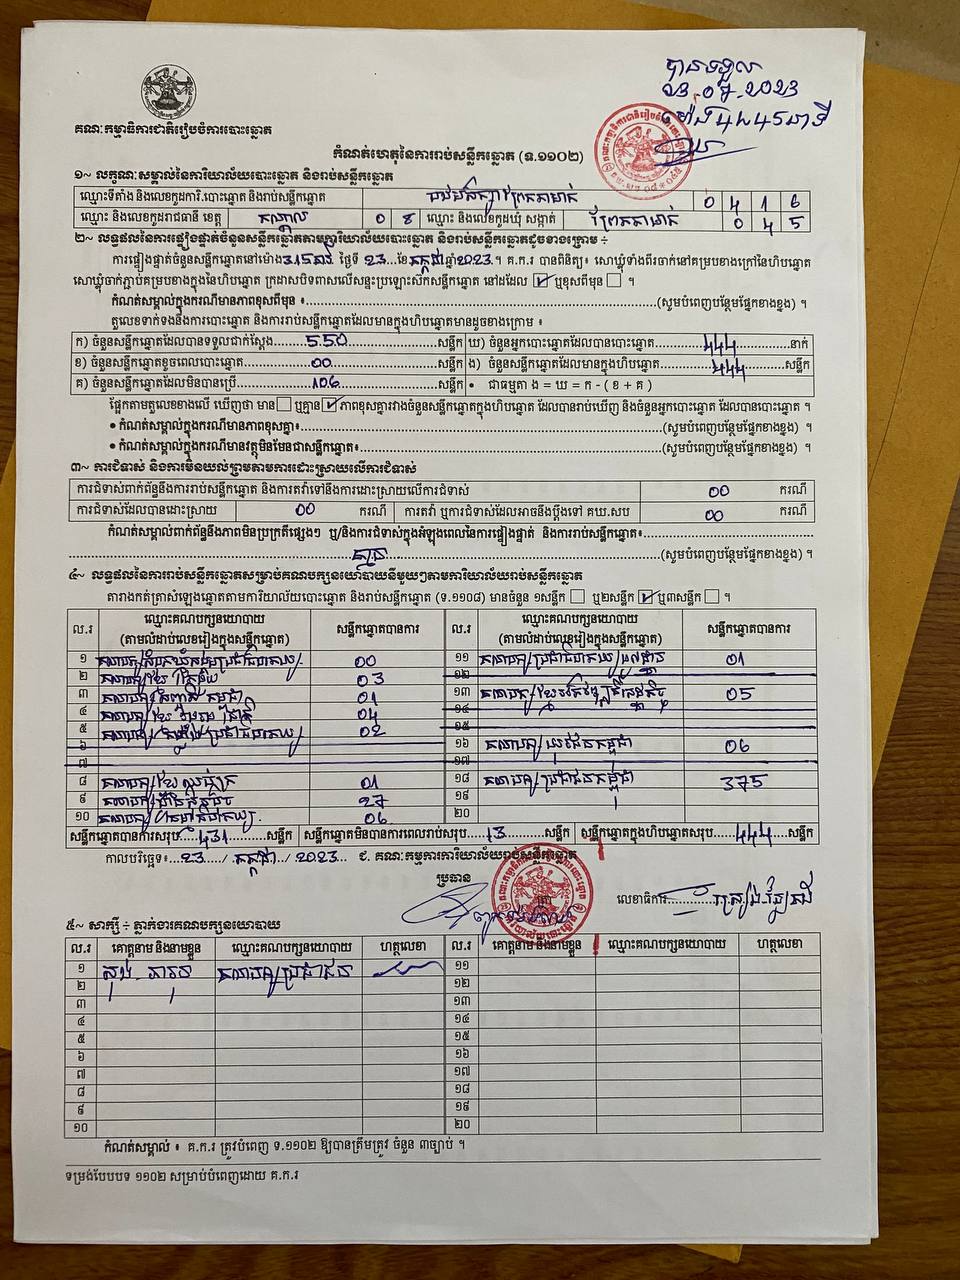 បានទទួល
23.07.2023
ម៉ោង 4 45 នាទី
គណៈកម្មាធិការជាតិរៀបចំការបោះឆ្នោត
កំណត់ហេតុនៃការរាប់សន្លឹកឆ្នោត (ទ.១១០២)
១~ លក្ខណៈសម្គាល់នៃការិយាល័យបោះឆ្នោត និងរាប់សន្លឹកឆ្នោត
ឈ្មោះទីតាំង និងលេខកូដការិ.បោះឆ្នោត និងរាប់សន្លឹកឆ្នោត 0 4 1 6
ឈ្មោះ និងលេខកូដរាជធានី ខេត្ត កណ្តាល 0 8 ឈ្មោះ និងលេខកូដឃុំ សង្កាត់ ព្រែកតាមាក់ 0 4 5
២~ លទ្ធផលនៃការផ្ទៀងផ្ទាត់ចំនួនសន្លឹកឆ្នោតតាមការិយាល័យបោះឆ្នោត និងរាប់សន្លឹកឆ្នោតដូចខាងក្រោម ÷
ការផ្ទៀងផ្ទាត់ចំនួនសន្លឹកឆ្នោតនៅម៉ោង 3:15 នាទី ថ្ងៃទី 23 ខែ កក្កដា ឆ្នាំ 2023 ។ គ.ក.រ បានពិនិត្យ៖ សោឃ្លុំទាំងពីរចាក់នៅគម្របខាងក្រៅនៃហិបឆ្នោត
សោឃ្លុំចាក់ភ្ជាប់គម្របខាងក្នុងនៃហិបឆ្នោត ក្រដាសបិទពាសលើសន្ទះប្រឡោះស៊កសន្លឹកឆ្នោត នៅដដែល ☑ ឬខុសពីមុន ☐ ។
កំណត់សម្គាល់ក្នុងករណីមានភាពខុសពីមុន ៖ (សូមបំពេញបន្ថែមផ្នែកខាងខ្នង) ។
តួលេខទាក់ទងនឹងការបោះឆ្នោត និងការរាប់សន្លឹកឆ្នោតដែលមានក្នុងហិបឆ្នោតមានដូចខាងក្រោម ៖
ក) ចំនួនសន្លឹកឆ្នោតដែលបានទទួលជាក់ស្តែង 550 សន្លឹក ឃ) ចំនួនអ្នកបោះឆ្នោតដែលបានបោះឆ្នោត 444 នាក់
ខ) ចំនួនសន្លឹកឆ្នោតខូចពេលបោះឆ្នោត 00 សន្លឹក ង) ចំនួនសន្លឹកឆ្នោតដែលមានក្នុងហិបឆ្នោត 444 សន្លឹក
គ) ចំនួនសន្លឹកឆ្នោតដែលមិនបានប្រើ 106 សន្លឹក • ជាធម្មតា ង = ឃ = ក - ( ខ + គ )
ផ្អែកតាមតួលេខខាងលើ ឃើញថា មាន ☐ ឬគ្មាន ☑ ភាពខុសគ្នារវាងចំនួនសន្លឹកឆ្នោតក្នុងហិបឆ្នោត ដែលបានរាប់ឃើញ និងចំនួនអ្នកបោះឆ្នោត ដែលបានបោះឆ្នោត ។
• កំណត់សម្គាល់ក្នុងករណីមានភាពខុសគ្នា៖ (សូមបំពេញបន្ថែមផ្នែកខាងខ្នង) ។
• កំណត់សម្គាល់ក្នុងករណីមានវត្ថុមិនមែនជាសន្លឹកឆ្នោត៖ (សូមបំពេញបន្ថែមផ្នែកខាងខ្នង) ។
៣~ ការជំទាស់ និងការមិនយល់ព្រមតាមការដោះស្រាយលើការជំទាស់
ការជំទាស់ពាក់ព័ន្ធនឹងការរាប់សន្លឹកឆ្នោត និងការតវ៉ាទៅនឹងការដោះស្រាយលើការជំទាស់ 00 ករណី
ការជំទាស់ដែលបានដោះស្រាយ 00 ករណី ការតវ៉ា ឬការជំទាស់ដែលអាចនឹងប្តឹងទៅ គឃ.សប 00 ករណី
កំណត់សម្គាល់ពាក់ព័ន្ធនឹងភាពមិនប្រក្រតីផ្សេងៗ ឬ/និងការជំទាស់ក្នុងអំឡុងពេលនៃការផ្ទៀងផ្ទាត់ និងការរាប់សន្លឹកឆ្នោត៖
គ្មាន (សូមបំពេញបន្ថែមផ្នែកខាងខ្នង) ។
៤~ លទ្ធផលនៃការរាប់សន្លឹកឆ្នោតសម្រាប់គណបក្សនយោបាយនីមួយៗតាមការិយាល័យរាប់សន្លឹកឆ្នោត
តារាងកត់ត្រាសំឡេងឆ្នោតតាមការិយាល័យបោះឆ្នោត និងរាប់សន្លឹកឆ្នោត (ទ.១១០៨) មានចំនួន ១សន្លឹក ☐ ឬ២សន្លឹក ☑ ឬ៣សន្លឹក ☐ ។
ល.រ ឈ្មោះគណបក្សនយោបាយ (តាមលំដាប់លេខរៀងក្នុងសន្លឹកឆ្នោត) សន្លឹកឆ្នោតបានការ ល.រ ឈ្មោះគណបក្សនយោបាយ (តាមលំដាប់លេខរៀងក្នុងសន្លឹកឆ្នោត) សន្លឹកឆ្នោតបានការ
១ 00 ១១ 01
២ 03 ១២
៣ 01 ១៣ 05
៤ 04 ១៤
៥ 02 ១៥
៦ ១៦ គណបក្ស យុវជនកម្ពុជា 06
៧ ១៧
៨ 01 ១៨ គណបក្ស ប្រជាជនកម្ពុជា 375
៩ 27 ១៩
១០ 06 ២០
សន្លឹកឆ្នោតបានការសរុប 431 សន្លឹក សន្លឹកឆ្នោតមិនបានការពេលរាប់សរុប 13 សន្លឹក សន្លឹកឆ្នោតក្នុងហិបឆ្នោតសរុប 444 សន្លឹក
កាលបរិច្ឆេទ៖ 23 / កក្កដា / 2023 ជ. គណៈកម្មការការិយាល័យរាប់សន្លឹកឆ្នោត
ប្រធាន
លេខាធិការ
៥~ សាក្សី ÷ ភ្នាក់ងារគណបក្សនយោបាយ
ល.រ គោត្តនាម និងនាមខ្លួន ឈ្មោះគណបក្សនយោបាយ ហត្ថលេខា ល.រ គោត្តនាម និងនាមខ្លួន ឈ្មោះគណបក្សនយោបាយ ហត្ថលេខា
១ គណបក្ស ប្រជាជន ១១
២ ១២
៣ ១៣
៤ ១៤
៥ ១៥
៦ ១៦
៧ ១៧
៨ ១៨
៩ ១៩
១០ ២០
កំណត់សម្គាល់ ៖ គ.ក.រ ត្រូវបំពេញ ទ.១១០២ ឱ្យបានត្រឹមត្រូវ ចំនួន ៣ច្បាប់ ។
ទម្រង់បែបបទ ១១០២ សម្រាប់បំពេញដោយ គ.ក.រ